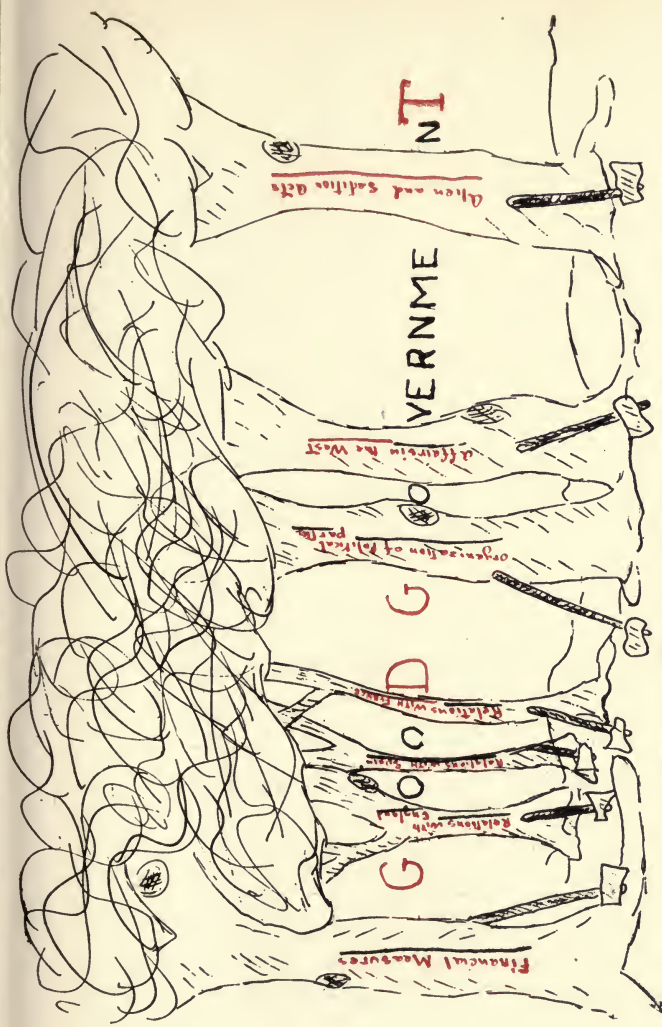 GOOD GOVERNMENT
Financial Measures
Relations with
England
Relations with Spain
Relations with France
Organization of Political
parties
Affairs in the West
Alien and Sedition Acts